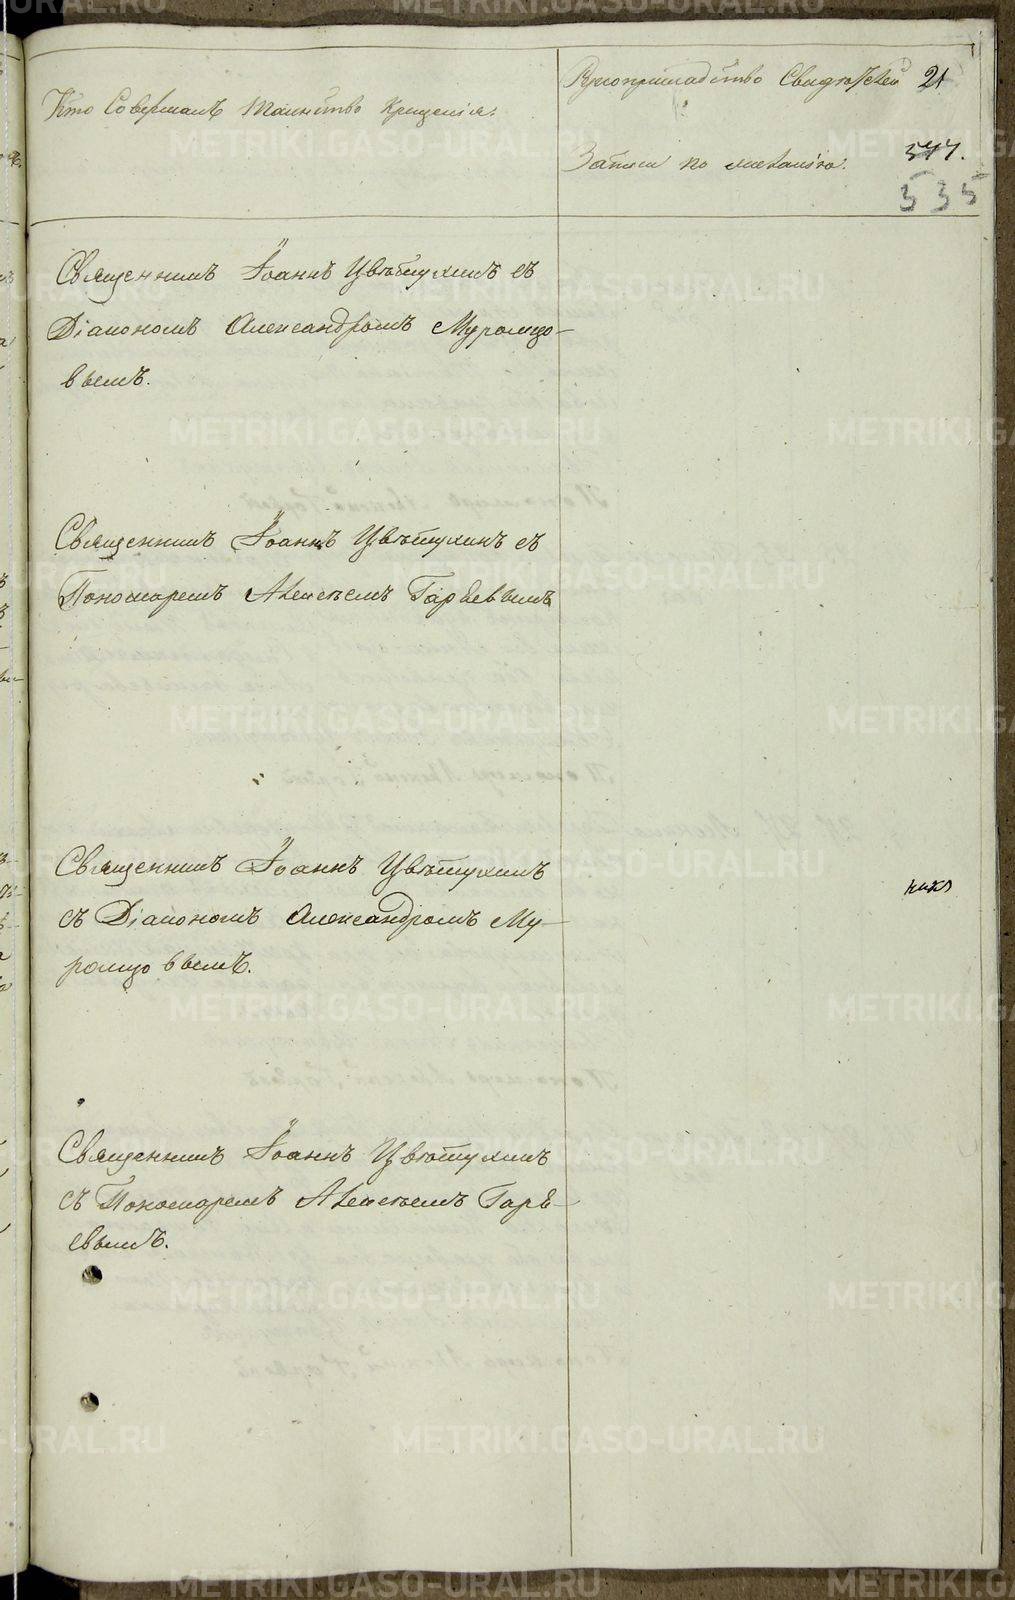 Кто совершалъ таинство крещенія.
Рукоприкладство свидѣтелей 21
записи по желанію. 547.
535
Священникъ Іоаннъ Цвѣтухинъ съ
Діакономъ Александромъ Муромцо-
вымъ.
Священникъ Іоаннъ Цвѣтухинъ съ
Пономаремъ Алексѣемъ Гаряевымъ
Священникъ Іоаннъ Цвѣтухинъ
съ Діакономъ Александромъ Му-
ромцовымъ.
Священникъ Іоаннъ Цвѣтухинъ
съ Пономаремъ Алексѣемъ Гаря-
евымъ.
METRIKI.GASO-URAL.RU